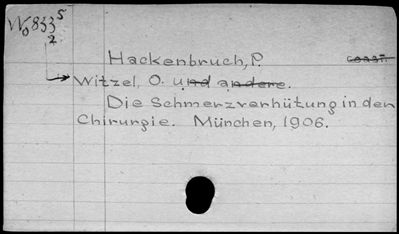 Wo833⁵
2.
Hackenbruch, P.
Witzel, O. und andere.
Die Schmerzverhütung in der
Chirurgie. München, 1906.